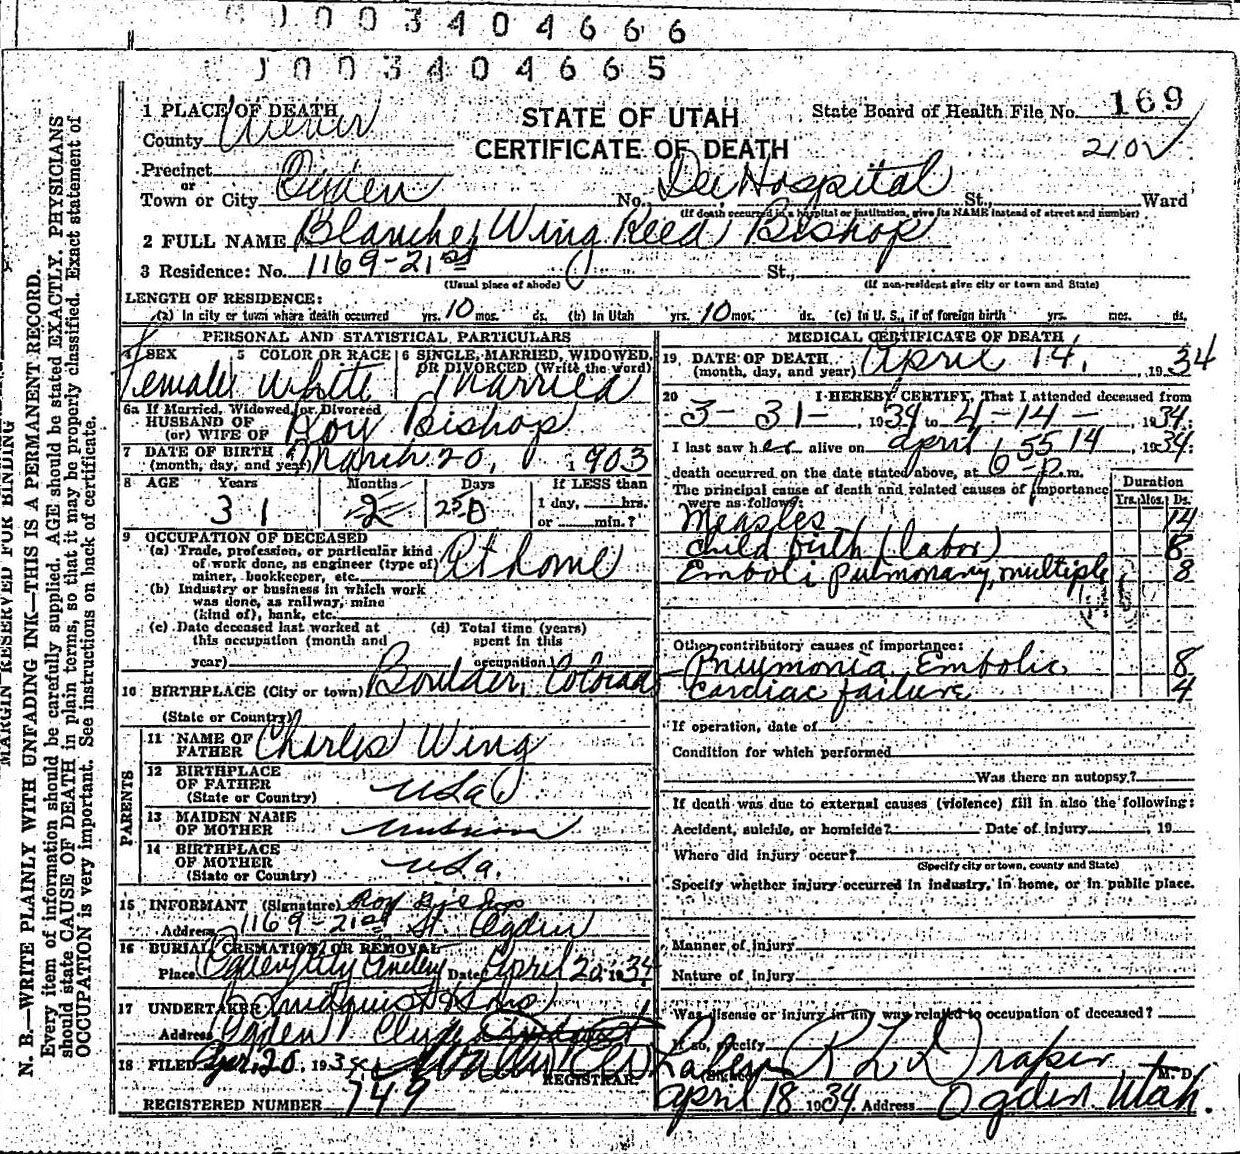 J 0 0 3 4 0 4 6 6 6
J 0 0 3 4 0 4 6 6 5
MARGIN RESERVED FOR BINDING
N. B.—WRITE PLAINLY WITH UNFADING INK—THIS IS A PERMANENT RECORD.
Every item of information should be carefully supplied. AGE should be stated EXACTLY. PHYSICIANS
should state CAUSE OF DEATH in plain terms, so that it may be properly classified. Exact statement of
OCCUPATION is very important. See instructions on back of certificate.
STATE OF UTAH
CERTIFICATE OF DEATH
State Board of Health File No. 169
210
1 PLACE OF DEATH
County Weber
Precinct
or
Town or City Ogden No. Dee Hospital St., Ward
(If death occurred in a hospital or institution, give its NAME instead of street and number)
2 FULL NAME Blanche Wing Reed Bishop
3 Residence: No. 1169-21st St.,
(Usual place of abode) (If non-resident give city or town and State)
LENGTH OF RESIDENCE:
(a) In city or town where death occurred yrs. 10 mos. ds. (b) In Utah yrs. 10 mos. ds. (c) In U. S., if of foreign birth yrs. mos. ds.
PERSONAL AND STATISTICAL PARTICULARS
4 SEX 5 COLOR OR RACE 6 SINGLE, MARRIED, WIDOWED, OR DIVORCED (Write the word)
Female White Married
6a If Married, Widowed, or Divorced
HUSBAND OF
(or) WIFE OF Roy Bishop
7 DATE OF BIRTH
(month, day, and year) March 20, 1903
8 AGE Years Months Days If LESS than
31 2 25 0 1 day, hrs.
or min.?
9 OCCUPATION OF DECEASED
(a) Trade, profession, or particular kind
of work done, as engineer (type of)
miner, bookkeeper, etc. At home
(b) Industry or business in which work
was done, as railway, mine
(kind of), bank, etc.
(c) Date deceased last worked at
this occupation (month and
year)
(d) Total time (years)
spent in this
occupation
10 BIRTHPLACE (City or town) Boulder, Colorado
(State or Country)
PARENTS
11 NAME OF
FATHER Charles Wing
12 BIRTHPLACE
OF FATHER
(State or Country) USA
13 MAIDEN NAME
OF MOTHER
14 BIRTHPLACE
OF MOTHER
(State or Country) USA.
15 INFORMANT (Signature) Roy Bishop
Address 1169-21st St. Ogden
16 BURIAL, CREMATION, OR REMOVAL
Place Ogden City Cemetery Date April 20, 1934
17 UNDERTAKER Lindquist & Sons
Address Ogden Clyde Lindquist
18 FILED Apr. 20, 1934
REGISTRAR.
REGISTERED NUMBER 749
MEDICAL CERTIFICATE OF DEATH
19 DATE OF DEATH
(month, day, and year) April 14, 1934
20 I HEREBY CERTIFY, That I attended deceased from
3-31-, 1934 to 4-14-, 1934;
I last saw her alive on april 14, 1934;
death occurred on the date stated above, at 6:55 p.m.
The principal cause of death and related causes of importance
were as follows:
Duration
Yrs. Mos. Ds.
Measles 14
Child birth (labor) 8
Emboli pulmonary, multiple 8
Other contributory causes of importance:
Pneumonia, Embolic 8
Cardiac failure 4
If operation, date of
Condition for which performed
Was there an autopsy?
If death was due to external causes (violence) fill in also the following:
Accident, suicide, or homicide? Date of injury , 19
Where did injury occur?
(Specify city or town, county and State)
Specify whether injury occurred in industry, in home, or in public place.
Manner of injury
Nature of injury
Was disease or injury in any way related to occupation of deceased?
If so, specify
R L Draper M. D.
April 18 1934 Address Ogden Utah.